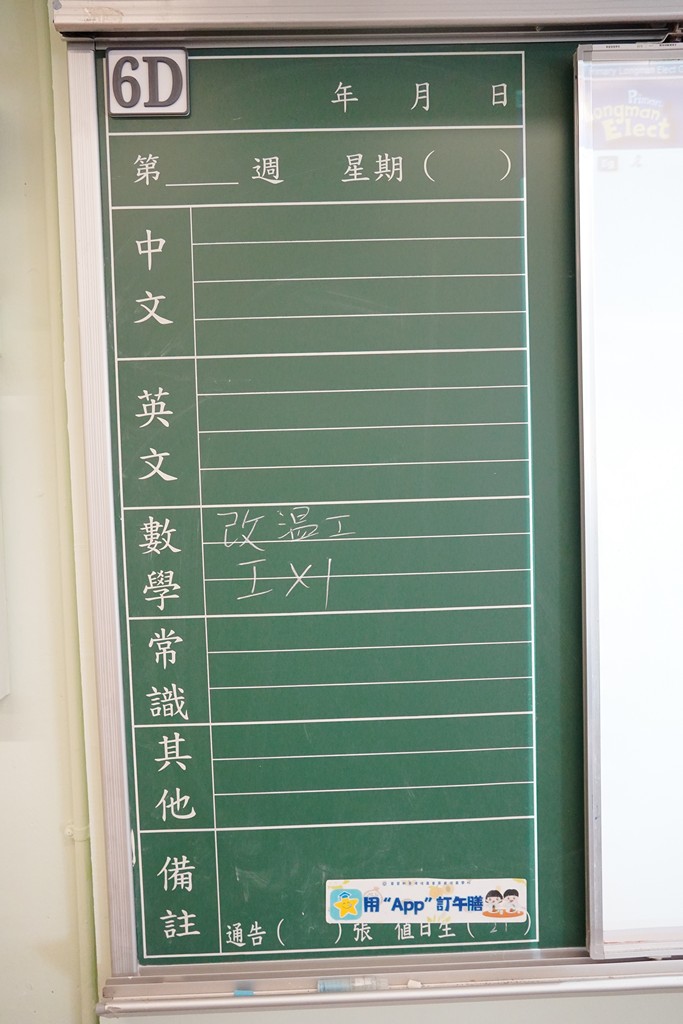 6D
年 月 日
第____週 星期( )
中文
英文
數學
改溫工
工×1
常識
其他
備註
用“App”訂午膳
通告( )張 值日生( 21 )
Longman
Elect